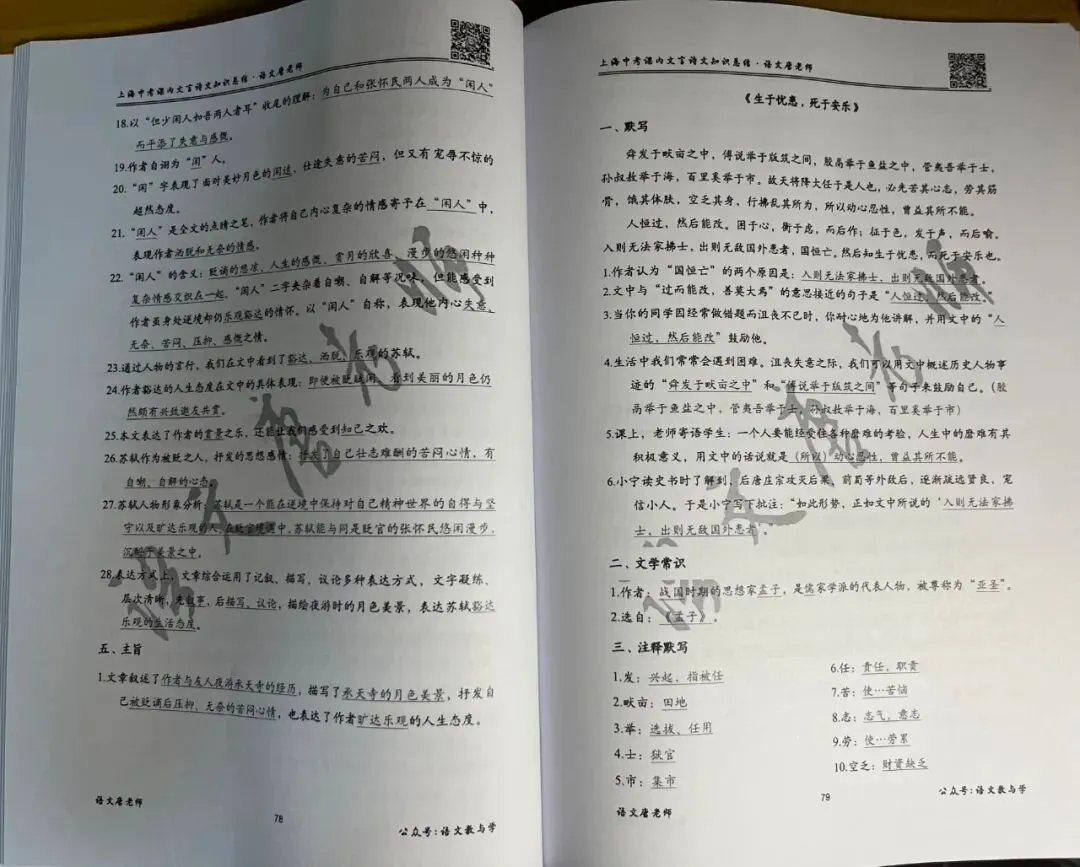 上海中考课内文言诗文知识总结·语文唐老师
18.以“但少闲人如吾两人者耳”收尾的理解：为自己和张怀民两人成为“闲人”
而平添了失意与感慨。
19.作者自诩为“闲”人。
20.“闲”字表现了面对美妙月色的闲适，仕途失意的苦闷，但又有宠辱不惊的
超然态度。
21.“闲人”是全文的点睛之笔，作者将自己内心复杂的情感寄于在“闲人”中，
表现作者洒脱和无奈的情感。
22.“闲人”的含义：贬谪的悲凉、人生的感慨、赏月的欣喜、漫步的悠闲种种
复杂情感交织在一起。“闲人”二字夹杂着自嘲、自解等况味，但能感受到
作者虽身处逆境却仍乐观豁达的情怀。以“闲人”自称，表现他内心失意、
无奈、苦闷、压抑、感慨之情。
23.通过人物的言行，我们在文中看到了豁达、洒脱、乐观的苏轼。
24.作者豁达的人生态度在文中的具体表现：即使被贬赋闲，看到美丽的月色仍
然颇有兴致邀友共赏。
25.本文表达了作者的赏景之乐，还能让我们感受到知己之欢。
26.苏轼作为被贬之人，抒发的思想感情：抒发了自己壮志难酬的苦闷心情，有
自嘲、自解的心态。
27.苏轼人物形象分析：苏轼是一个能在逆境中保持对自己精神世界的自得与坚
守以及旷达乐观的人，在贬官境遇中，苏轼能与同是贬官的张怀民悠闲漫步，
沉醉于美景之中。
28.表达方式上，文章综合运用了记叙、描写、议论多种表达方式，文字凝练、
层次清晰，先叙事，后描写、议论，描绘夜游时的月色美景，表达苏轼豁达
乐观的生活态度。
五、主旨
1.文章叙述了作者与友人夜游承天寺的经历，描写了承天寺的月色美景，抒发自
己被贬谪后压抑、无奈的苦闷心情，也表达了作者旷达乐观的人生态度。
语文唐老师
78
公众号：语文教与学
上海中考课内文言诗文知识总结·语文唐老师
《生于忧患，死于安乐》
一、默写
舜发于畎亩之中，傅说举于版筑之间，胶鬲举于鱼盐之中，管夷吾举于士，
孙叔敖举于海，百里奚举于市。故天将降大任于是人也，必先苦其心志，劳其筋
骨，饿其体肤，空乏其身，行拂乱其所为，所以动心忍性，曾益其所不能。
人恒过，然后能改。困于心，衡于虑，而后作；征于色，发于声，而后喻。
入则无法家拂士，出则无敌国外患者，国恒亡。然后知生于忧患，而死于安乐也。
1.作者认为“国恒亡”的两个原因是：入则无法家拂士，出则无敌国外患者。
2.文中与“过而能改，善莫大焉”的意思接近的句子是“人恒过，然后能改。”
3.当你的同学因经常做错题而沮丧不已时，你耐心地为他讲解，并用文中的“人
恒过，然后能改”鼓励他。
4.生活中我们常常会遇到困难。沮丧失意之际，我们可以用文中概述历史人物事
迹的“舜发于畎亩之中”和“傅说举于版筑之间”等句子来鼓励自己。（胶
鬲举于鱼盐之中，管夷吾举于士，孙叔敖举于海，百里奚举于市）
5.课上，老师寄语学生：一个人要能经受住各种磨难的考验，人生中的磨难有其
积极意义，用文中的话说就是（所以）动心忍性，曾益其所不能。
6.小宁读史书时了解到，后唐庄宗攻灭后梁、前蜀等外敌后，逐渐疏远贤良、宠
信小人。于是小宁写下批注：“如此形势，正如文中所说的‘入则无法家拂
士，出则无敌国外患者’。
二、文学常识
1.作者：战国时期的思想家孟子，是儒家学派的代表人物，被尊称为“亚圣”。
2.选自：《孟子》。
三、注释默写
1.发：兴起，指被任
2.畎亩：田地
3.举：选拔、任用
4.士：狱官
5.市：集市
6.任：责任，职责
7.苦：使…苦恼
8.志：志气，意志
9.劳：使…劳累
10.空乏：财资缺乏
语文唐老师
79
公众号：语文教与学